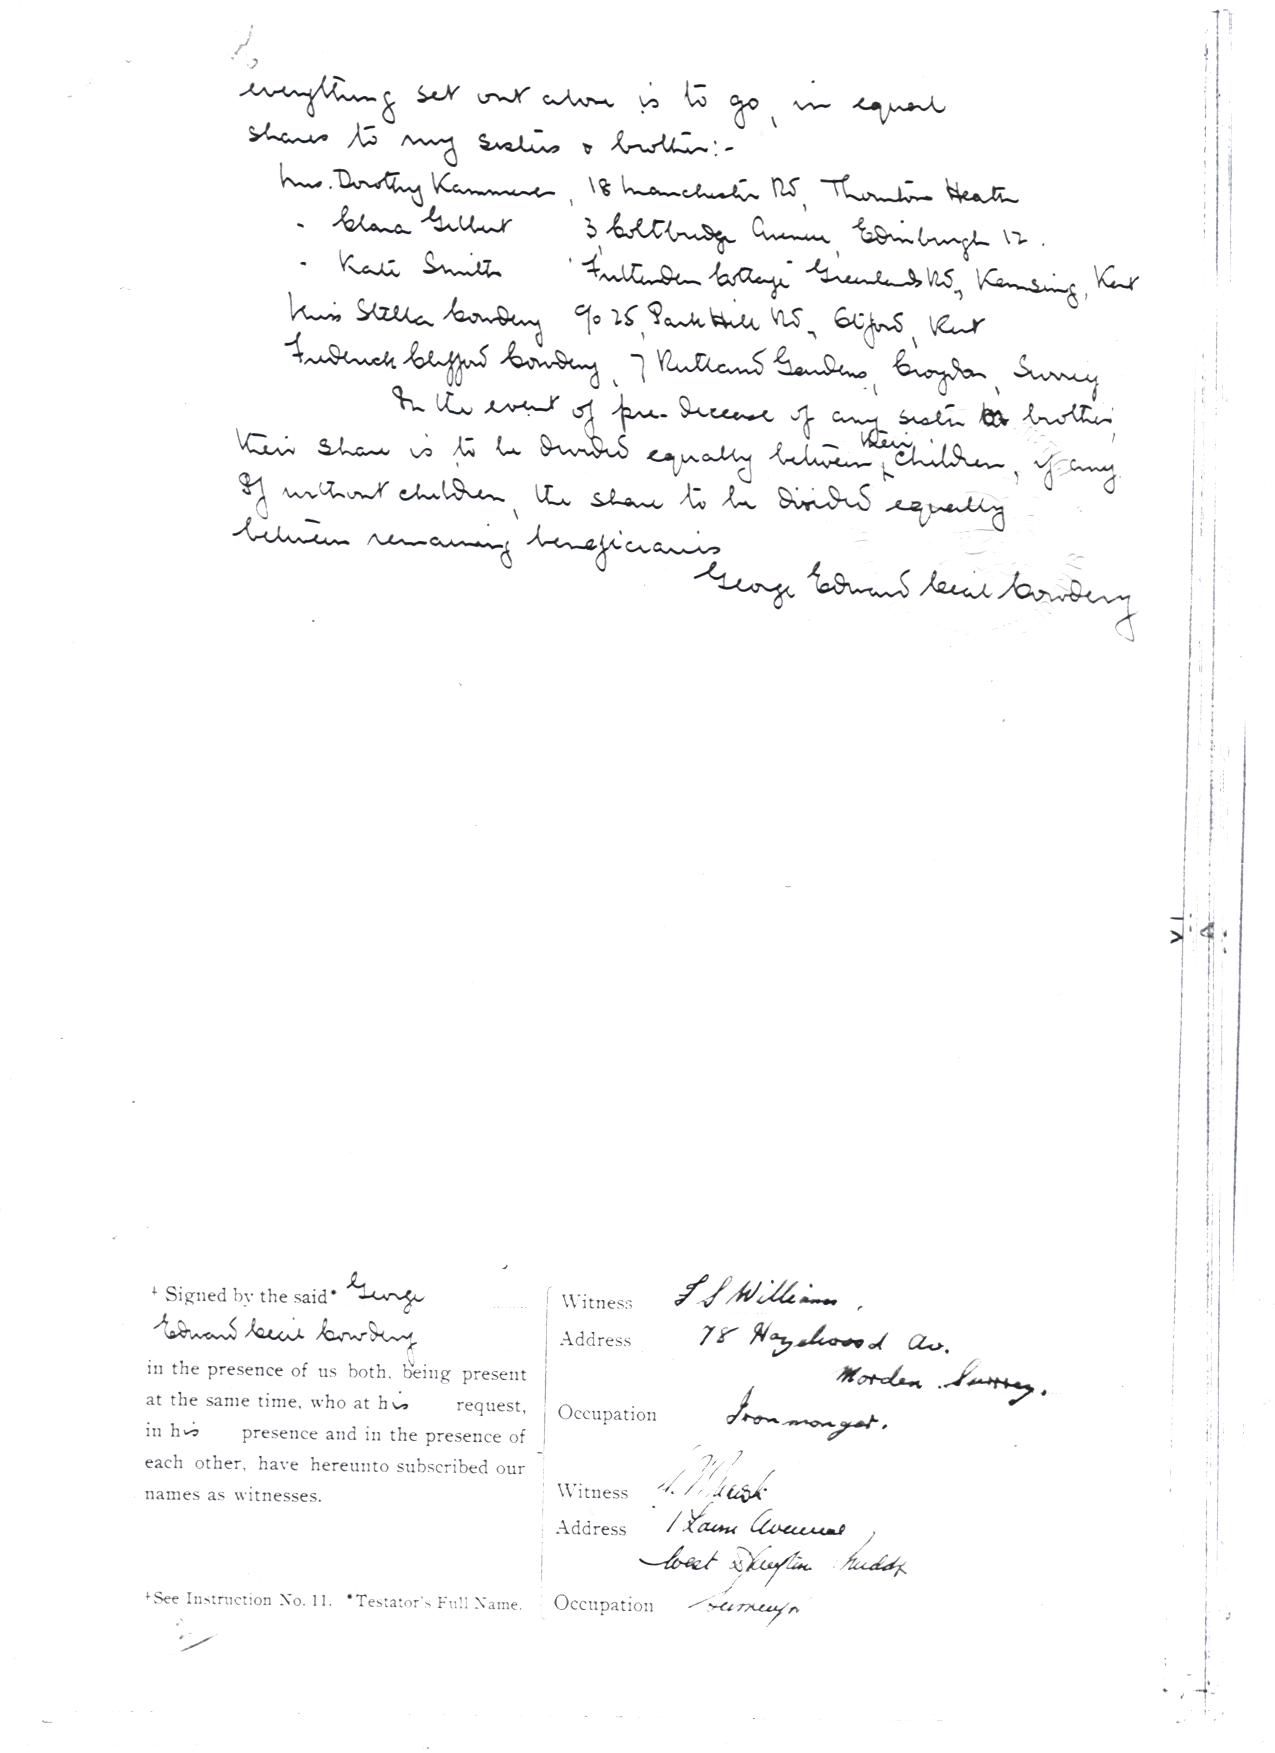 everything set out above is to go, in equal
shares to my sisters & brother:-
Mrs. Dorothy Kammerer, 18 Manchester Rd, Thornton Heath
" Clara Gilbert 3 Coltbridge Avenue, Edinburgh 12.
" Kate Smith "Frittenden Cottage" Greenlands Rd, Kemsing, Kent
Miss Stella Cowdery c/o 25, Park Hill Rd, Otford, Kent
Frederick Clifford Cowdery, 7 Rutland Gardens, Croydon, Surrey
In the event of pre-decease of any sister or brother,
their share is to be divided equally between their children, if any.
If without children, the share to be divided equally
between remaining beneficiaries
George Edward Cecil Cowdery
‡ Signed by the said* George
Edward Cecil Cowdery
in the presence of us both, being present
at the same time, who at his request,
in his presence and in the presence of
each other, have hereunto subscribed our
names as witnesses.
‡See Instruction No. 11. *Testator's Full Name.
Witness F S Williams,
Address 78 Hazelwood Av.
Morden. Surrey.
Occupation Ironmonger.
Witness
Address 1 Avenue,
West Drayton Middx
Occupation Surveyor